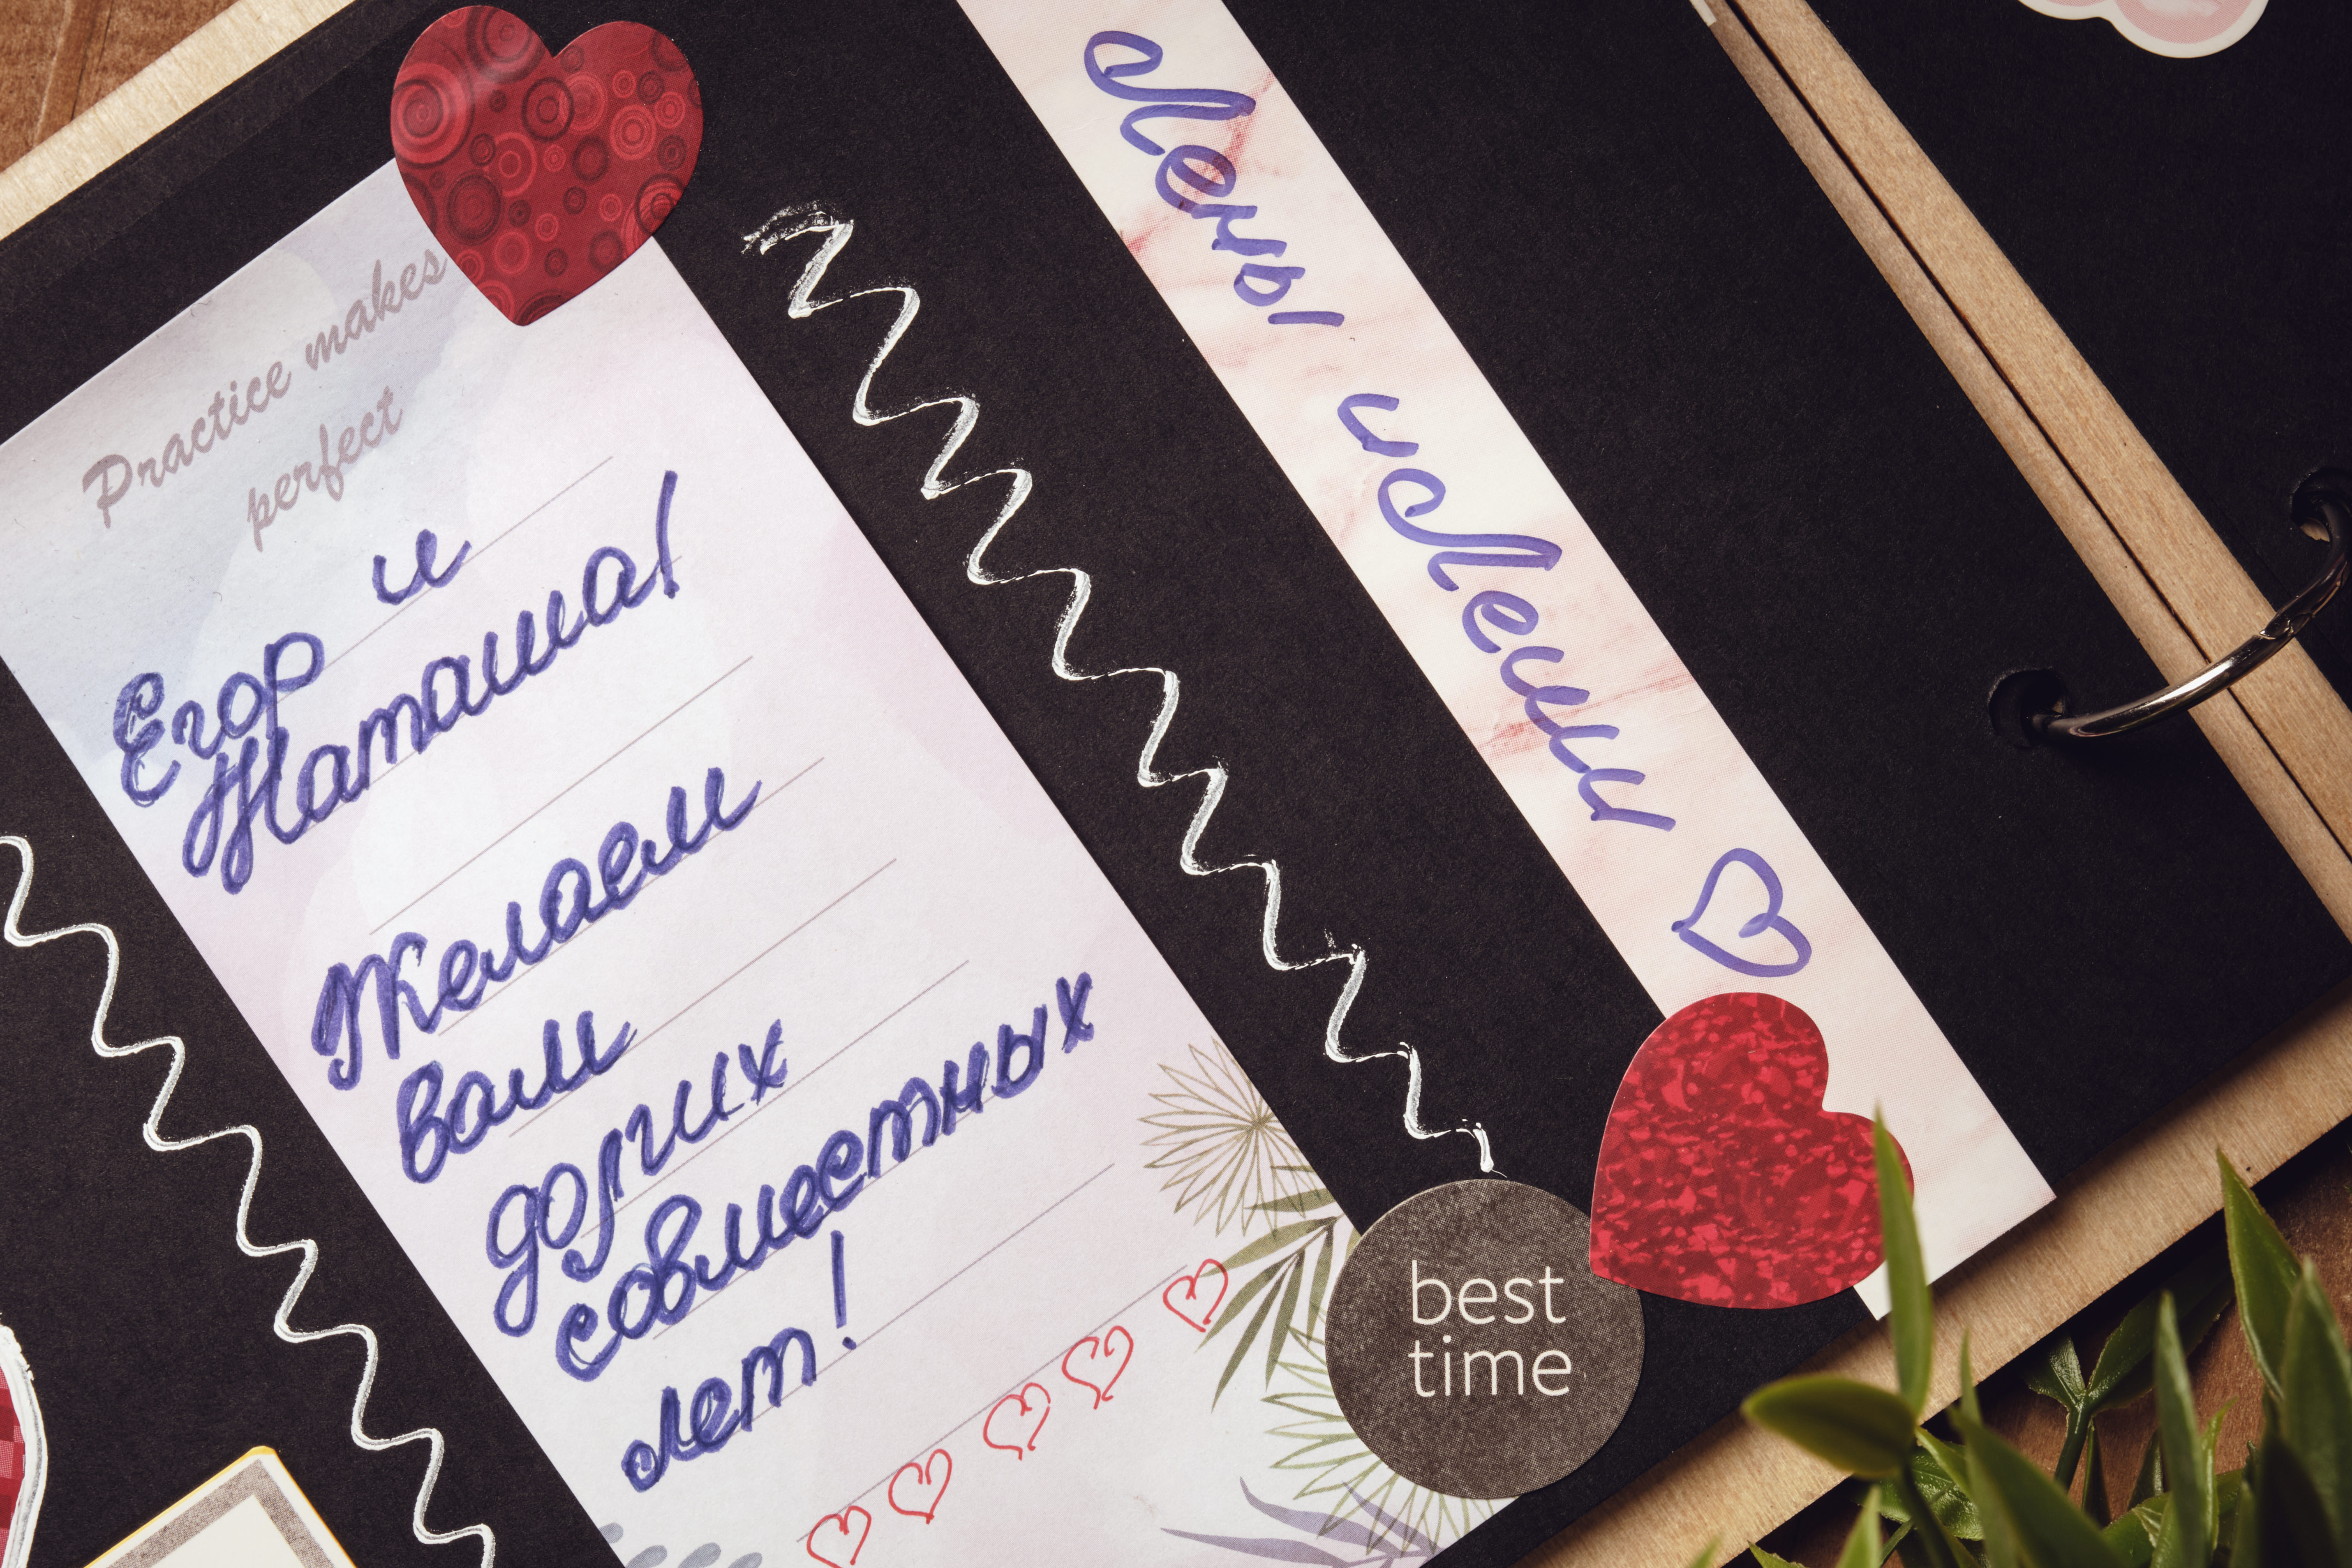 Practice makes
perfect
Егор и
Наташа!
Желаем
вам
долгих
совместных
лет!
Лены и Леши
best
time